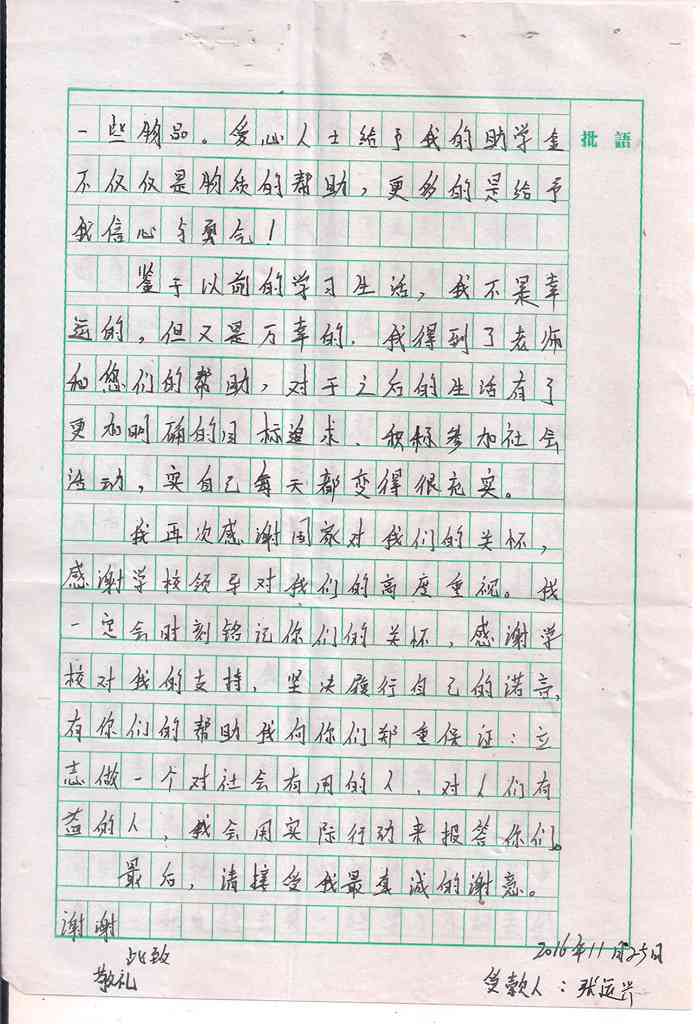 一些物品。爱心人士给予我的助学金
批語
不仅仅是物质的帮助，更多的是给予
我信心与勇气！
鉴于以前的学习生活，我不是幸
运的，但又是万幸的．我得到了老师
和您们的帮助，对于之后的生活有了
更加明确的目标追求．积极参加社会
活动，实自己每天都变得很充实。
我再次感谢国家对我们的关怀，
感谢学校领导对我们的高度重视。我
一定会时刻铭记你们的关怀，感谢学
校对我的支持．坚决履行自己的诺言，
有你们的帮助我向你们郑重保证：立
志做一个对社会有用的人．对人们有
益的人，我会用实际行动来报答你们。
最后，请接受我最真诚的谢意。
谢谢
此致
敬礼
2016年11月25日
受款人：张运兴